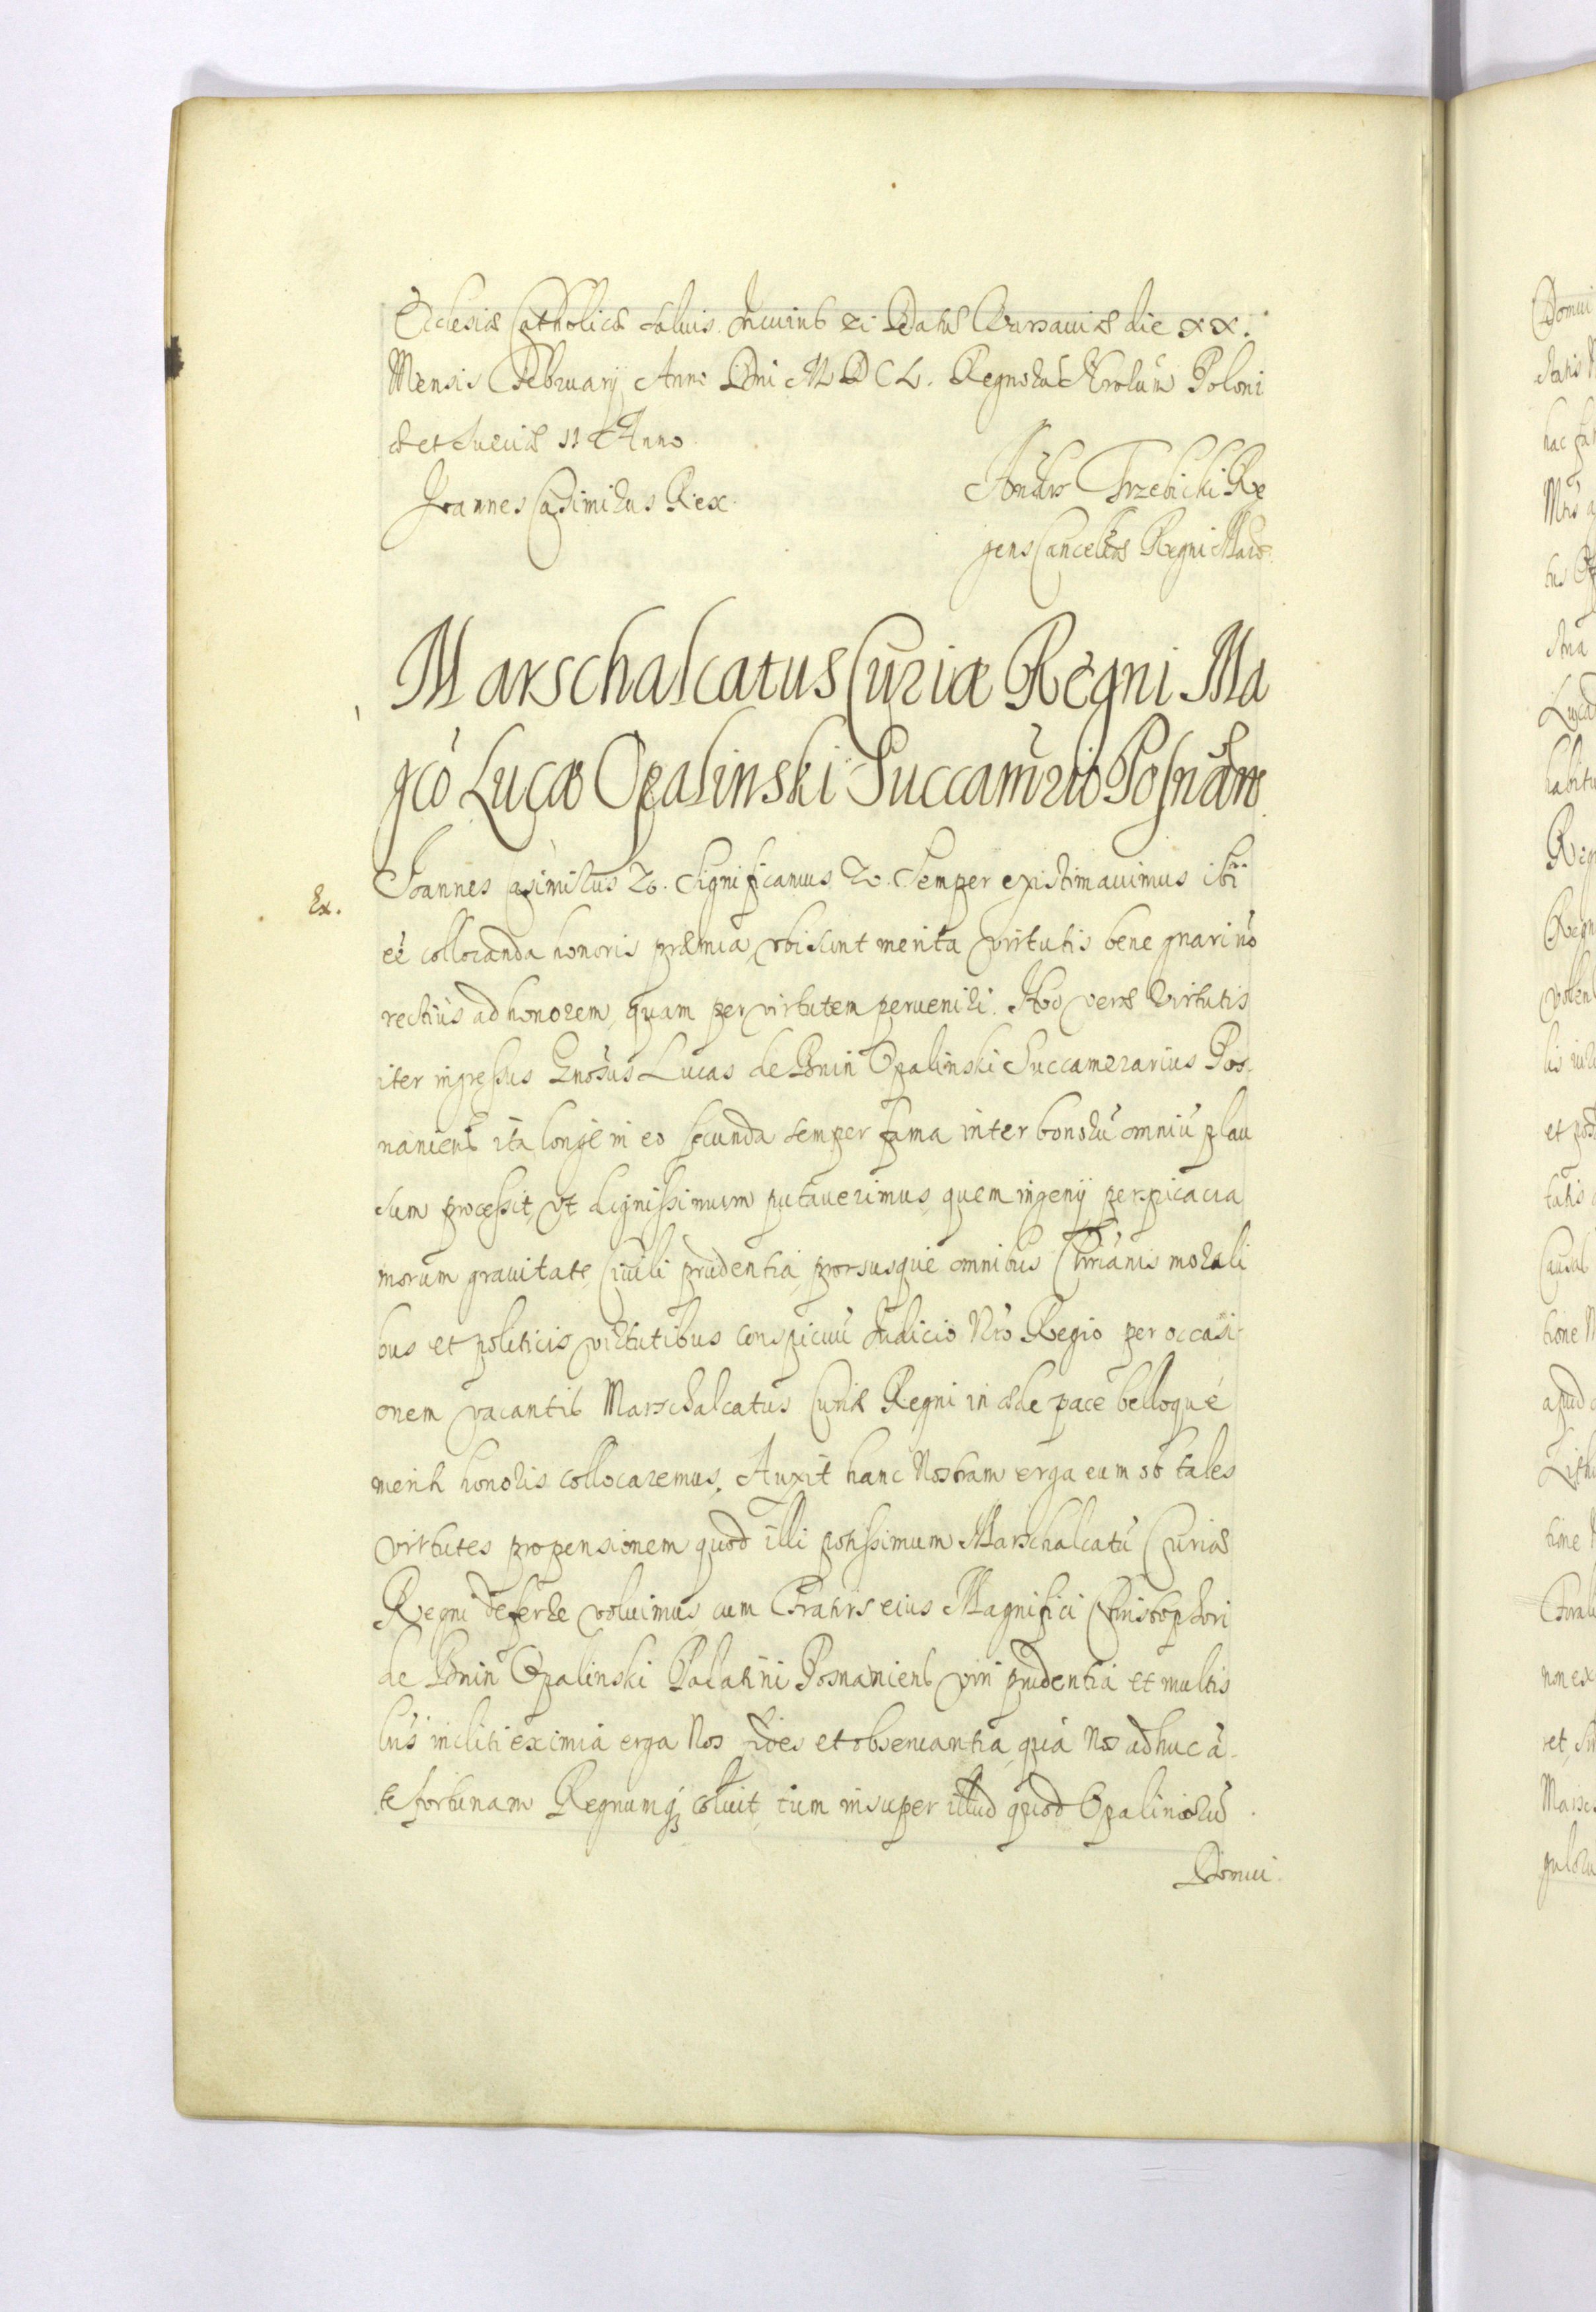 Ecclesiæ Catholicæ saluis. In cuius rei Datus Varsauiæ die XX.
Mensis February Anno Dni MDCL. Regnorũ Nrorum Poloni
æ et Sueciæ II do Anno
Joannes Casimirus Rex.
Andrs Trzebicki Re
gens Cancellae Regni
Marschalcatus Curiæ Regni Ma
gco Lucæ Opalinski Succamrio Posnãn
Ex.
Joannes Casimirus &c. Significamus &c. Semper existimauimus ibi
eẽ collocanda honoris præmia, vbi sunt merita virtutis bene gnari nõ
rectius ad honorem, quam per virtutem perueniri. Hoc veræ Virtutis
iter ingressus Gnosus Lucas de Bnin Opalinski Succamerarius Pos
naniens ita longe in eo secunda semper fama inter bonorũ omniũ plau
sum processit, vt dignissimum putauerimus, quem ingenij perspicacia
morum grauitate, Ciuili prudentia, prorsusque omnibus Chrianis morali
bus et politicis virtutibus conspicuũ Judicio Nro Regio per occasi
onem vacantis Marschalcatus Curiæ Regni in æde pace belloque
meriti honoris collocaremus. Auxit hanc Nostram erga eum ob tales
virtutes propensionem quod illi potissimum Marschalcatũ Curiæ
Regni deferre voluimus, cum Fratris eius Magnifici Christophori
de Bnin Opalinski Palatini Posnaniens viri prudentia et multis
incliti eximia erga Nos fides et obseruantia, qua Nos adhuc ã
te fortunam Regnumq; coluit, tum insuper illud quod Opaliniorũ
Domui